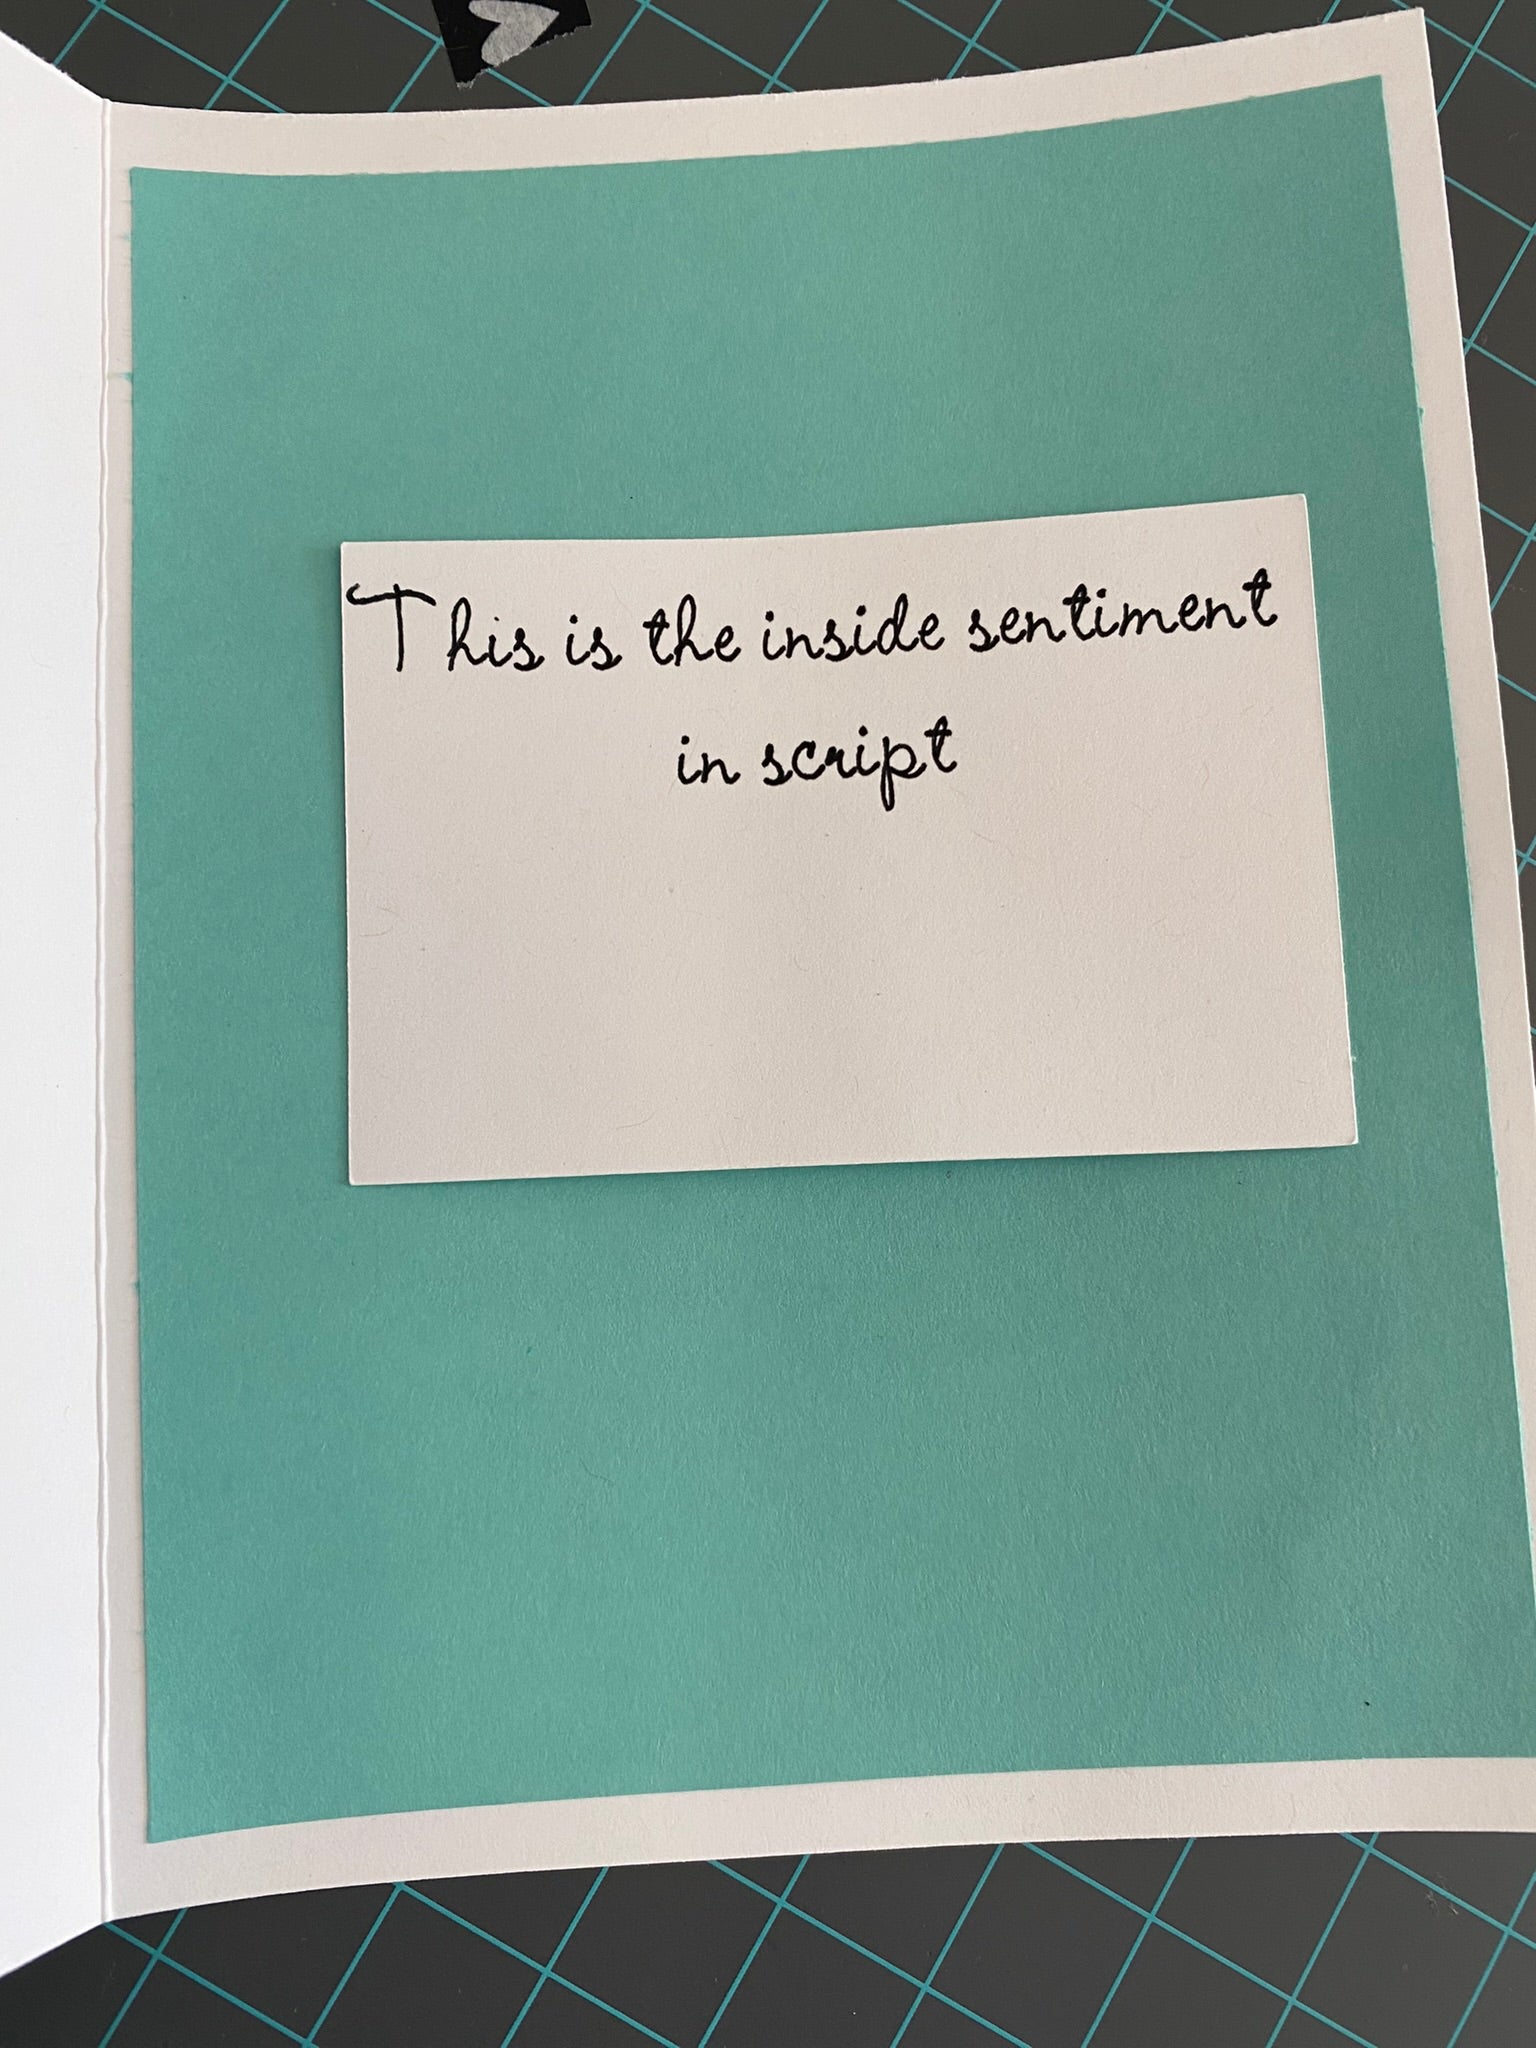 This is the inside sentiment
in script